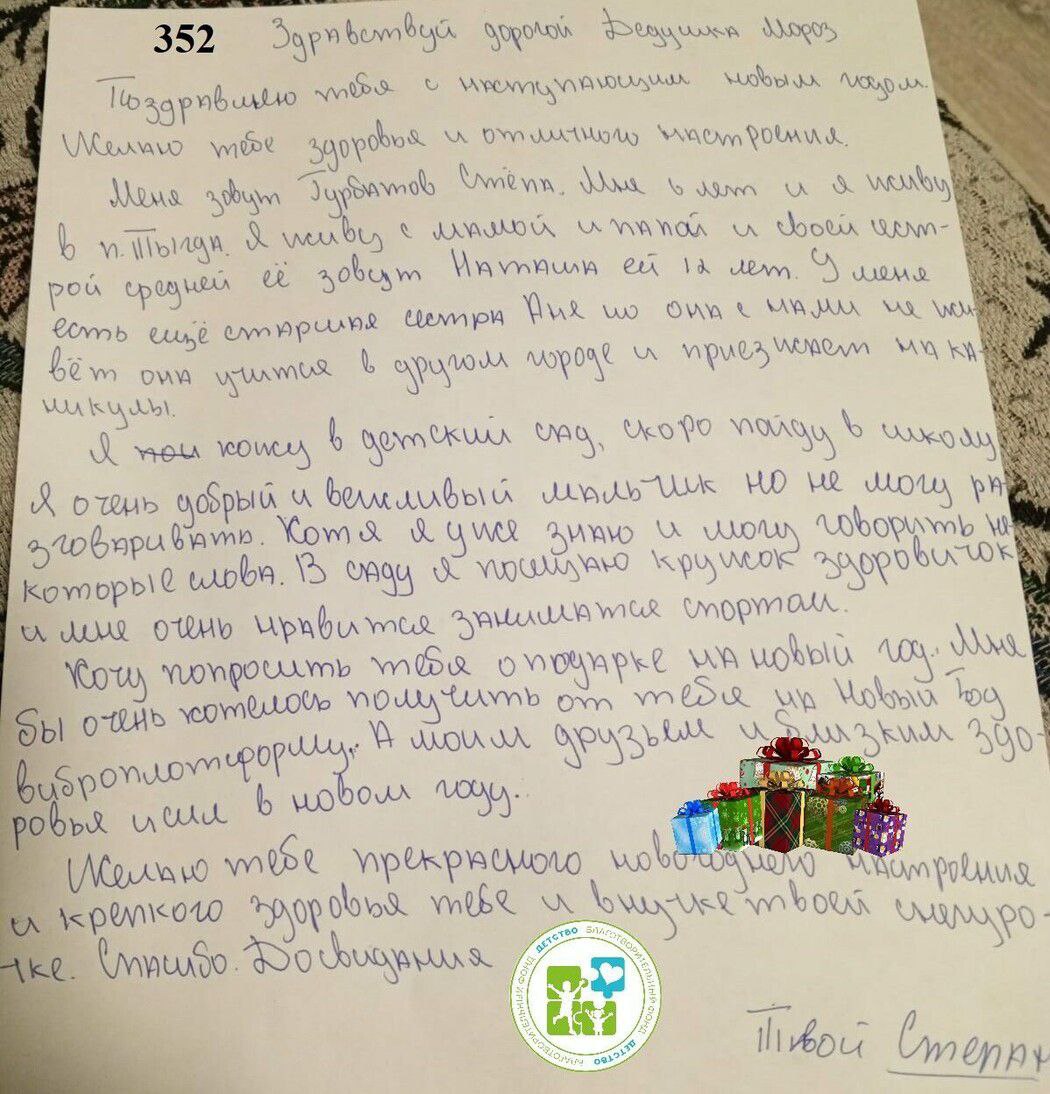 352
Здравствуй дорогой Дедушка Мороз
Поздравляю тебя с наступающим новым годом.
Желаю тебе здоровья и отличного настроения.
Меня зовут Гурбатов Стёпа. Мне 6 лет и я живу
в п. Тыгда. Я живу с мамой и папой и своей сест-
рой средней её зовут Наташа ей 12 лет. У меня
есть ещё старшая сестра Аня но она с нами не жи-
вёт она учится в другом городе и приезжает на ка-
никулы.
Я хожу в детский сад, скоро пойду в школу
Я очень добрый и вежливый мальчик но не могу ра-
зговаривать. Хотя я уже знаю и могу говорить не-
которые слова. В саду я посещаю кружок здоровичок
и мне очень нравится заниматся спортом.
Хочу попросить тебя о подарке на новый год. Мне
бы очень хотелось получить от тебя на Новый Год
виброплотформу. А моим друзьям и близким здо-
ровья и сил в новом году.
Желаю тебе прекрасного новогоднего настроения
и крепкого здоровья тебе и внучке твоей снегуро-
чке. Спасибо. Досвидания
Твой Степан
ДЕТСТВО БЛАГОТВОРИТЕЛЬНЫЙ ФОНД ДЕТСТВО БЛАГОТВОРИТЕЛЬНЫЙ ФОНД